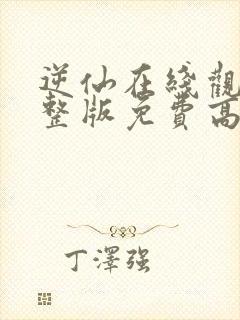 逆仙在綫觀
整版免費高
丁澤強